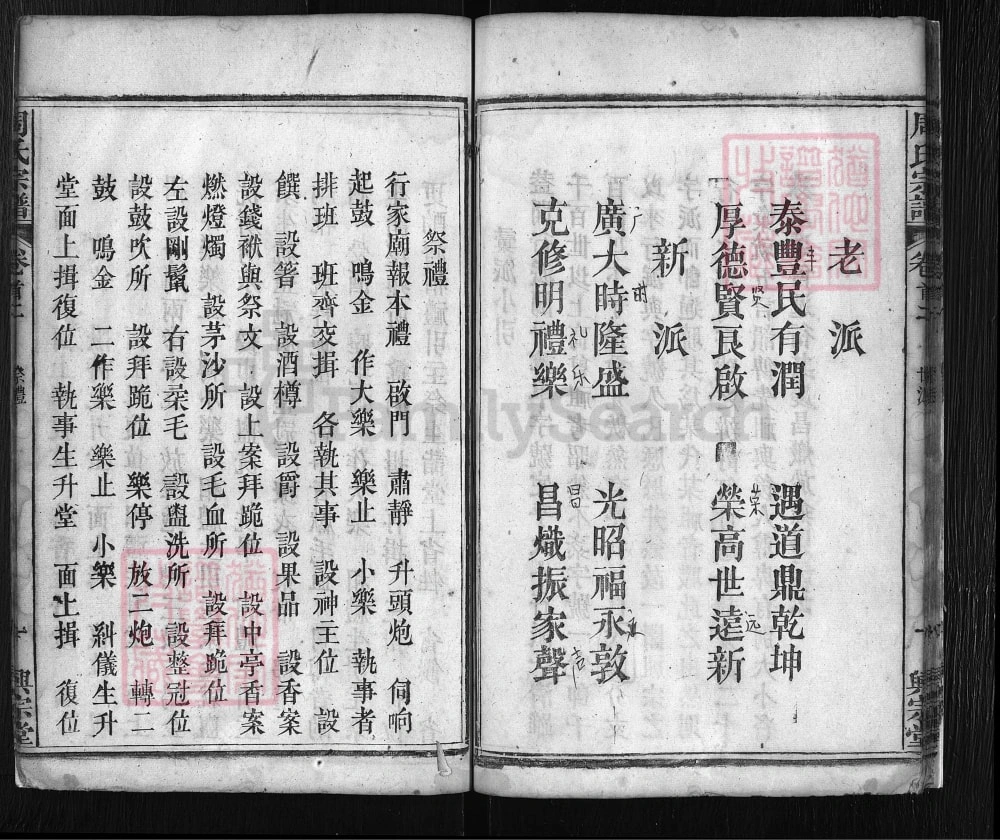 老派
泰豐民有潤 遇道鼎乾坤
厚德賢良啟 榮高世遠新
新派
廣大時隆盛 光昭福永敦
克修明禮樂 昌熾振家聲
祭禮
行家廟報本禮 啟門 肅靜 升頭炮 伺响
起鼓 鳴金 作大樂 樂止 小樂 執事者
排班 班齊交揖 各執其事 設神主位 設
饌 設箸 設酒樽 設爵 設果品 設香案
設錢袱與祭文 設上案拜跪位 設中亭香案
燃燈燭 設茅沙所 設毛血所 設拜跪位
左設剛鬣 右設柔毛 設盥洗所 設整冠位
設鼓吹所 設拜跪位 樂停 放二炮 轉二
鼓 鳴金 二作樂 樂止 小樂 糾儀生升
堂面上揖復位 執事生升堂 面上揖 復位
周氏宗譜 卷首 祭禮 興宗堂
周氏宗譜 卷首 興宗堂
FamilySearch